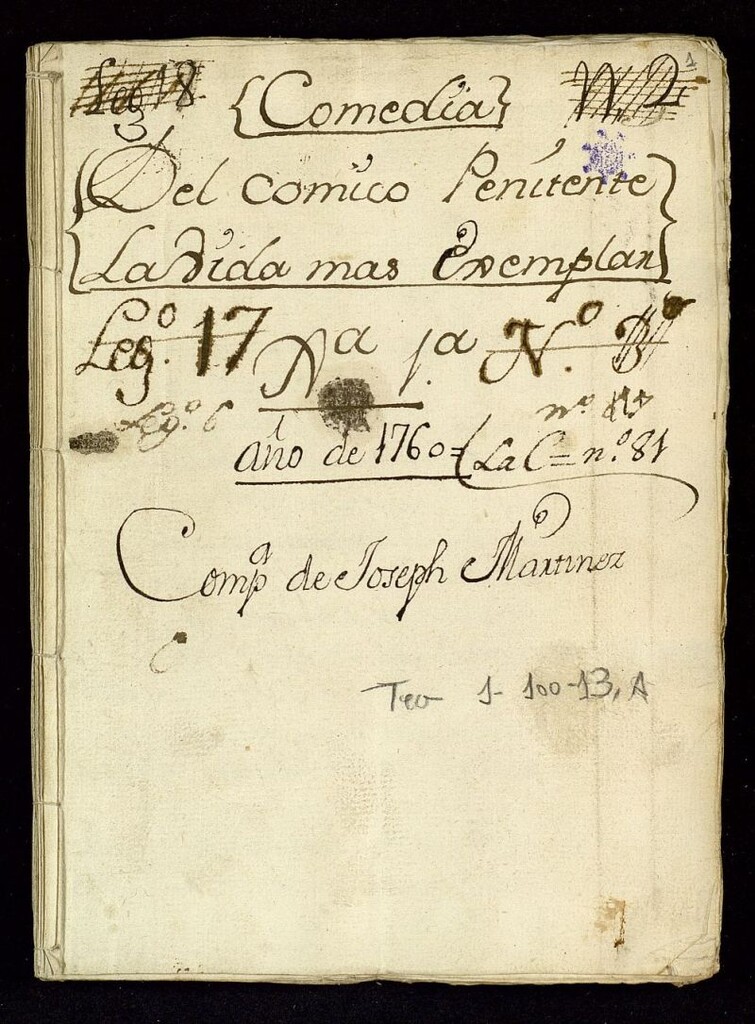 Leg 18 N, 2 1
3
{Comedia}
{Del comico Penitente
La vida mas Exemplar}
Leg.º 17 Nª 1.ª N.º
Leg.º 6 nº
año de 1760= La C= n.º 81
Comp.ª de Joseph Martinez
Tea 1-100-13, A